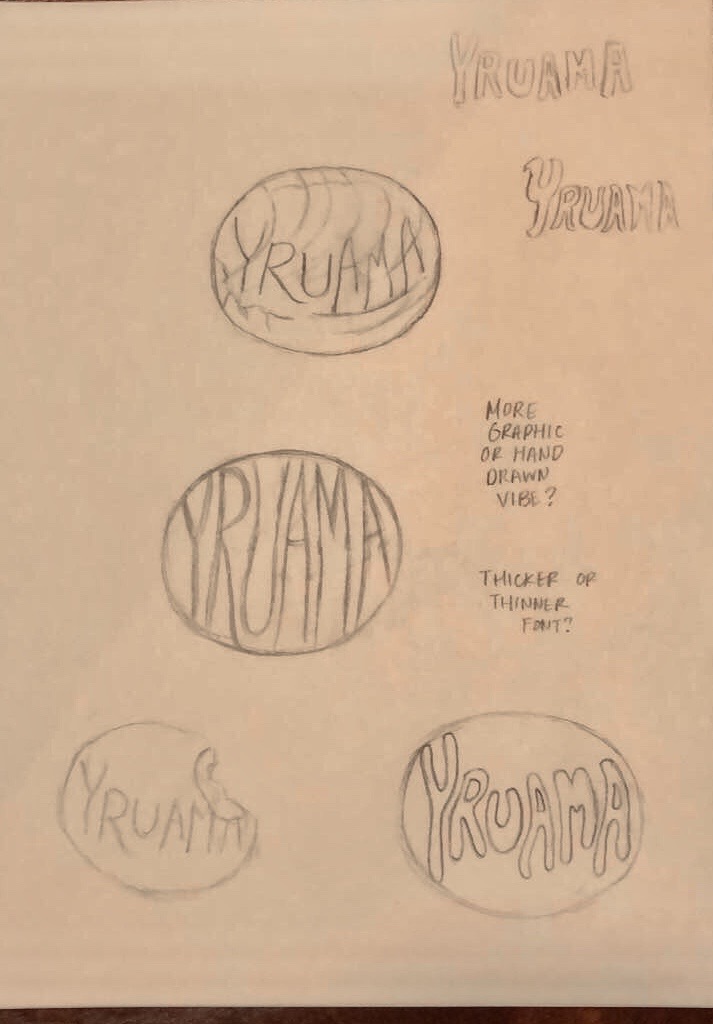 YRUAMA
YRUAMA
YRUAMA
MORE
GRAPHIC
OR HAND
DRAWN
VIBE?
YRUAMA
THICKER OR
THINNER
FONT?
YRUAMA
YRUAMA